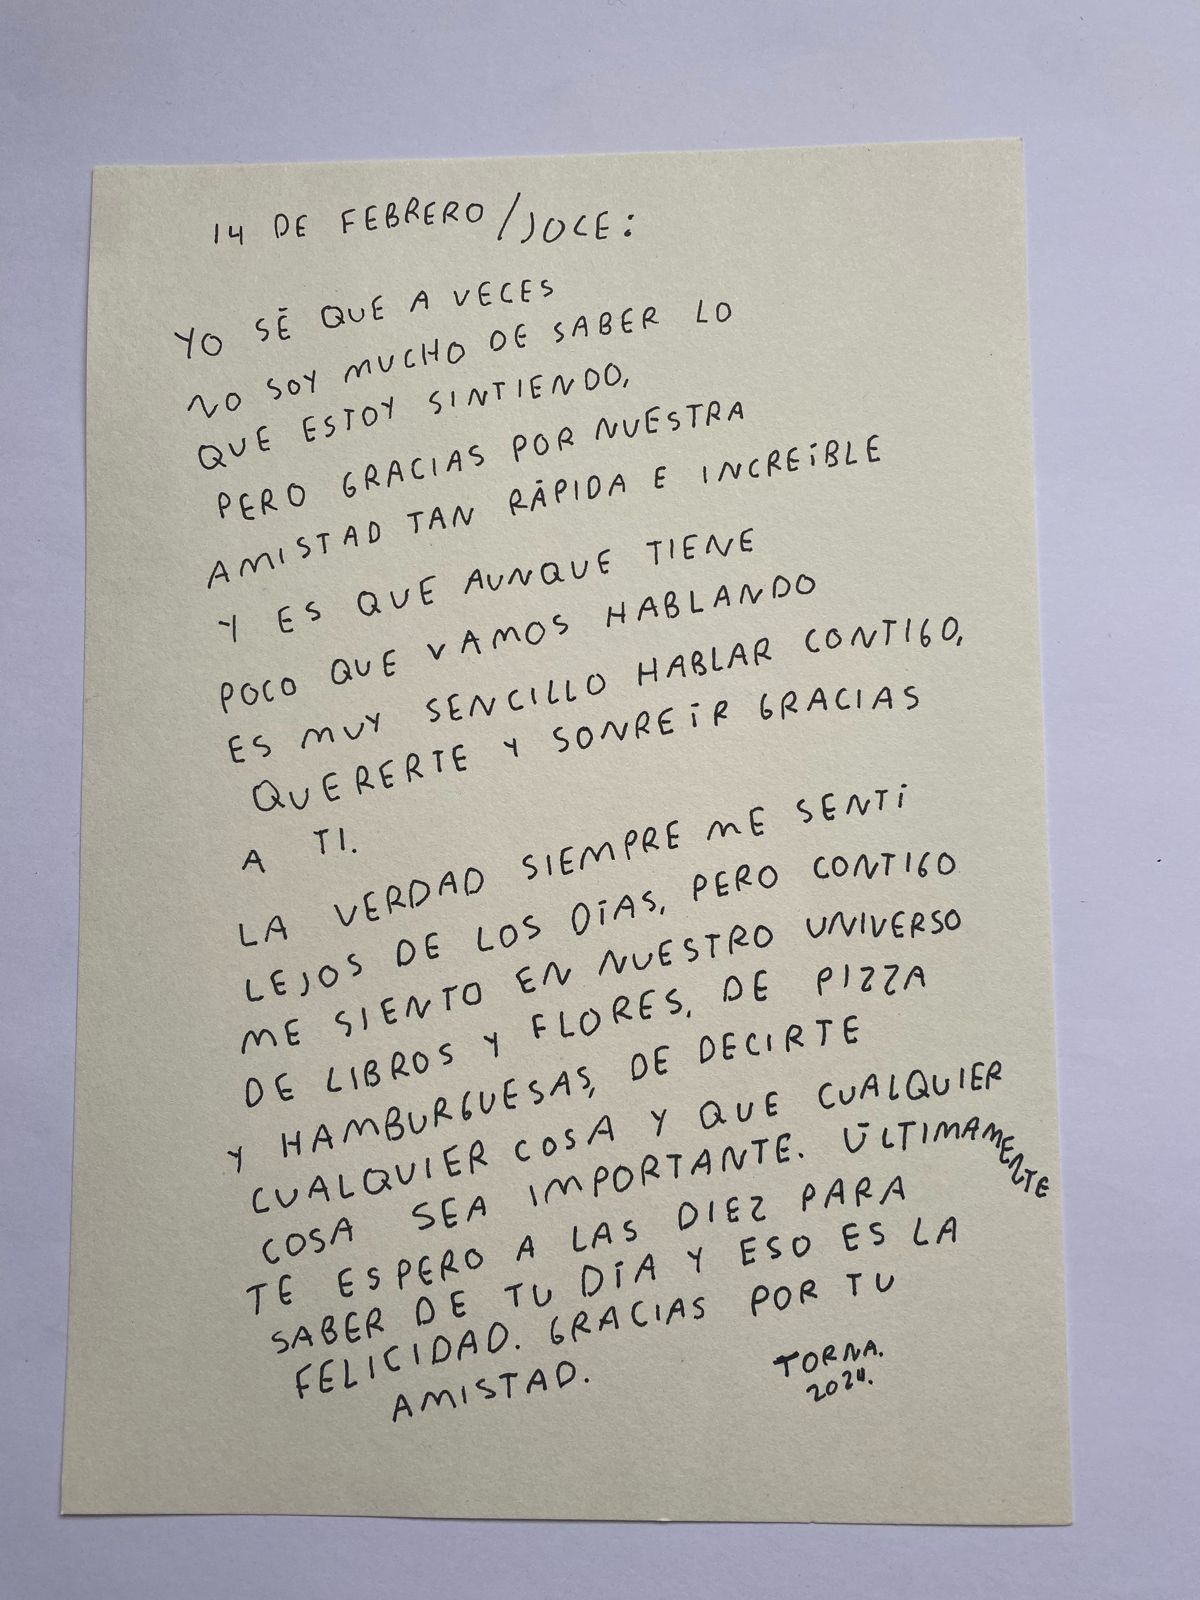 14 DE FEBRERO / JOCE:
YO SÉ QUE A VECES
NO SOY MUCHO DE SABER LO
QUE ESTOY SINTIENDO,
PERO GRACIAS POR NUESTRA
AMISTAD TAN RÁPIDA E INCREÍBLE
Y ES QUE AUNQUE TIENE
POCO QUE VAMOS HABLANDO
ES MUY SENCILLO HABLAR CONTIGO,
QUERERTE Y SONREÍR GRACIAS
A TI.
LA VERDAD SIEMPRE ME SENTÍ
LEJOS DE LOS DÍAS, PERO CONTIGO
ME SIENTO EN NUESTRO UNIVERSO
DE LIBROS Y FLORES, DE PIZZA
Y HAMBURGUESAS, DE DECIRTE
CUALQUIER COSA Y QUE CUALQUIER
COSA SEA IMPORTANTE. ÚLTIMAMENTE
TE ESPERO A LAS DIEZ PARA
SABER DE TU DÍA Y ESO ES LA
FELICIDAD. GRACIAS POR TU
AMISTAD.
TORNA.
2024.